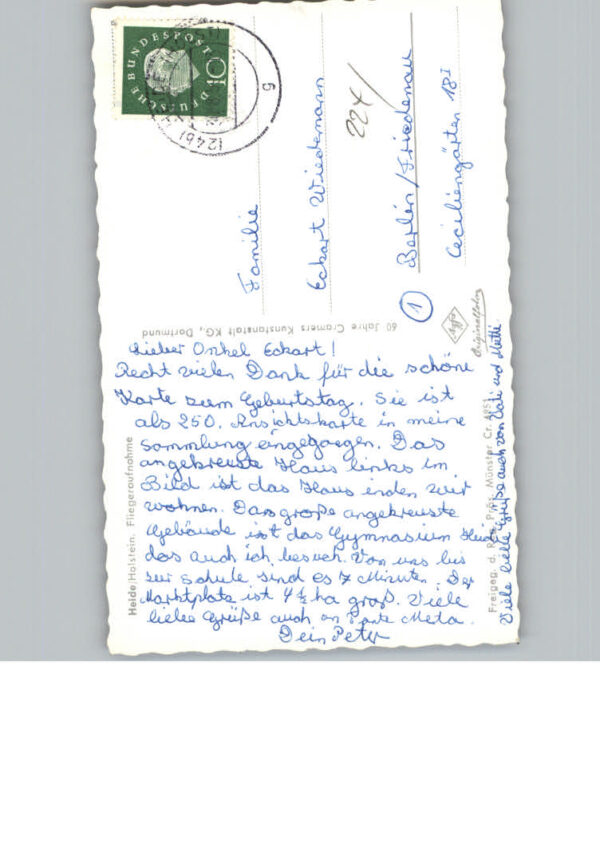 DEUTSCHE BUNDESPOST
10
(24b)
g
Familie
Eckart Wiedemann
224/
① Berlin/Friedenau
Ceciliengärten 18 I
60 Jahre Cramers Kunstanstalt KG., Dortmund
Agfa
Originalfoto
Lieber Onkel Eckart!
Recht vielen Dank für die schöne
Karte zum Geburtstag. Sie ist
als 250. Ansichtskarte in meine
Sammlung eingegaegen. Das
angekreuste Haus links im
Bild ist das Haus in den wir
wohnen. Das große angekreuste
Gebäude ist das Gymnasium
das auch ich besuch. Von uns bis
zur Schule sind es 7 Minuten. Der
Marktplatz ist 4½ ha groß. Viele
liebe Grüße auch an Tante Meta.
Dein Peter
Viele liebe Grüße auch von Vati und Mutti.
Heide/Holstein. Fliegeraufnahme
Freigeg. d. Reg. Präs. Münster Cr.